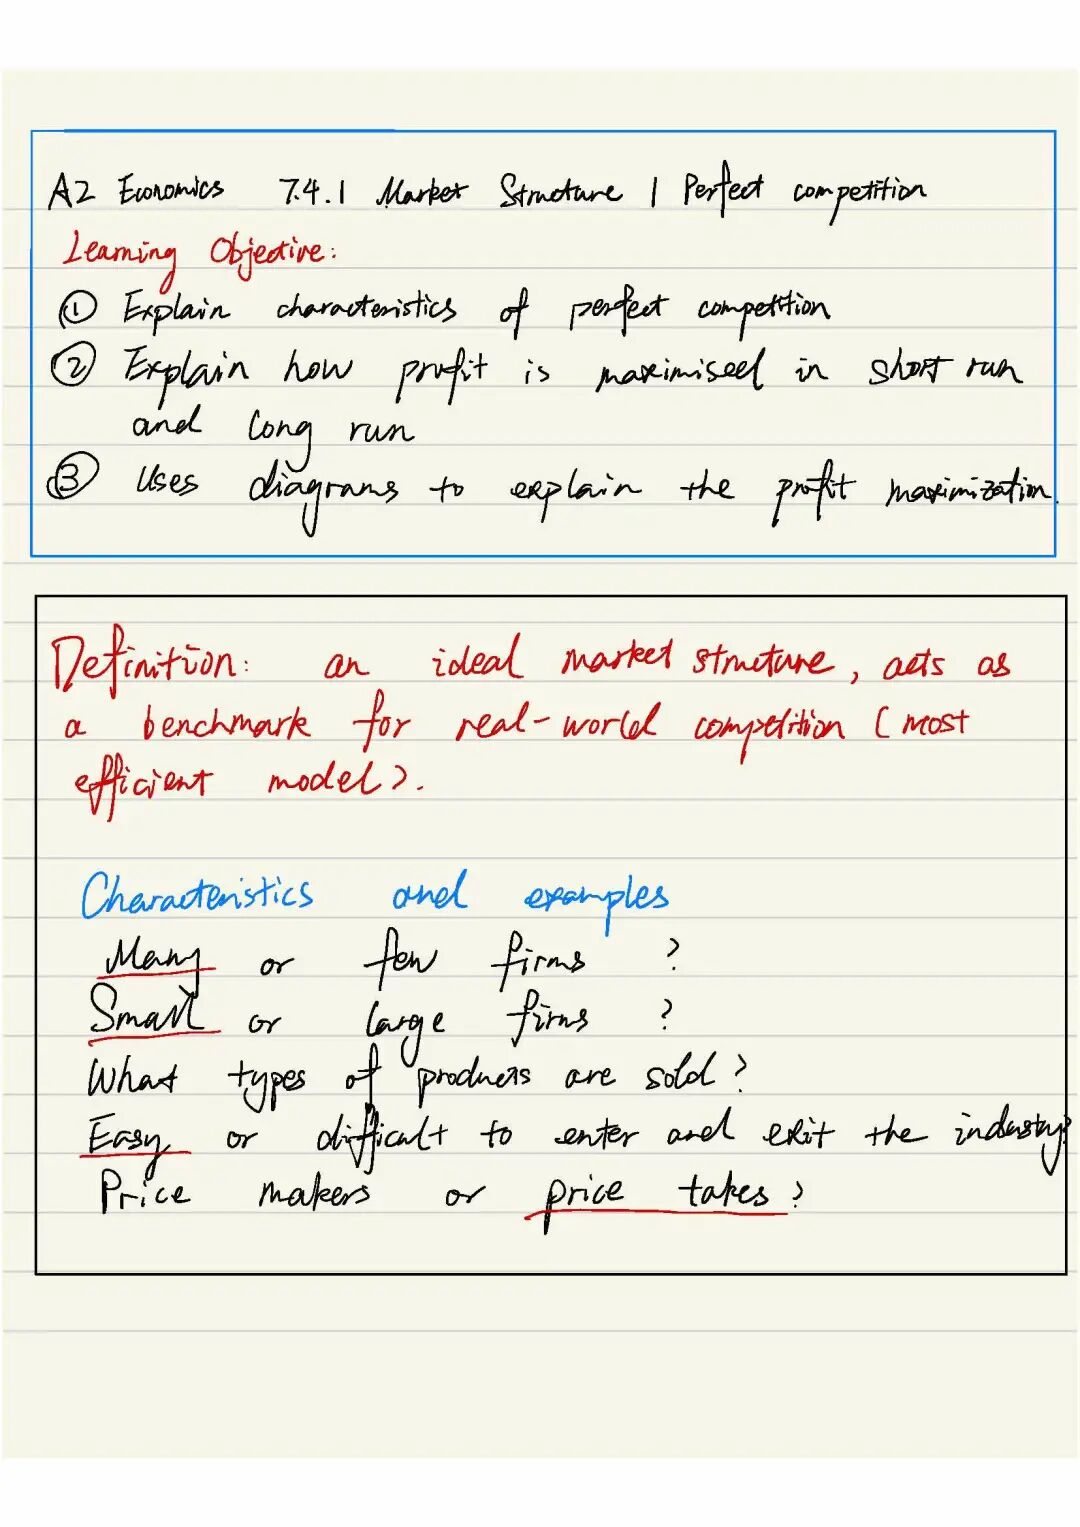 A2 Economics 7.4.1 Market Structure | Perfect competition
Learning Objective:
① Explain characteristics of perfect competition
② Explain how profit is maximised in short run
and long run
③ Uses diagrams to explain the profit maximization.
Definition: an ideal market structure, acts as
a benchmark for real-world competition (most
efficient model).
Characteristics and examples
Many or few firms ?
Small or large firms ?
What types of products are sold ?
Easy or difficult to enter and exit the industry?
Price makers or price takes ?